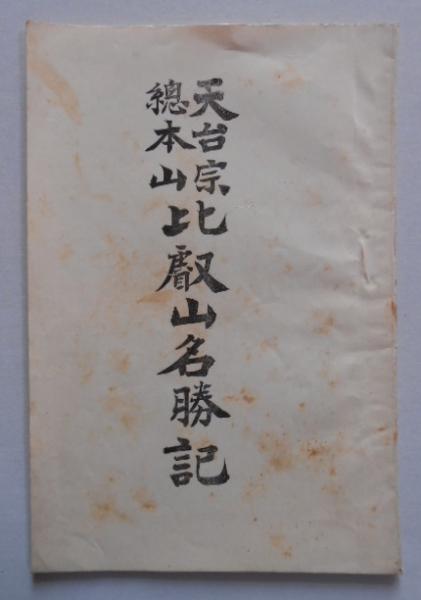 天台宗
總本山
比叡山名勝記